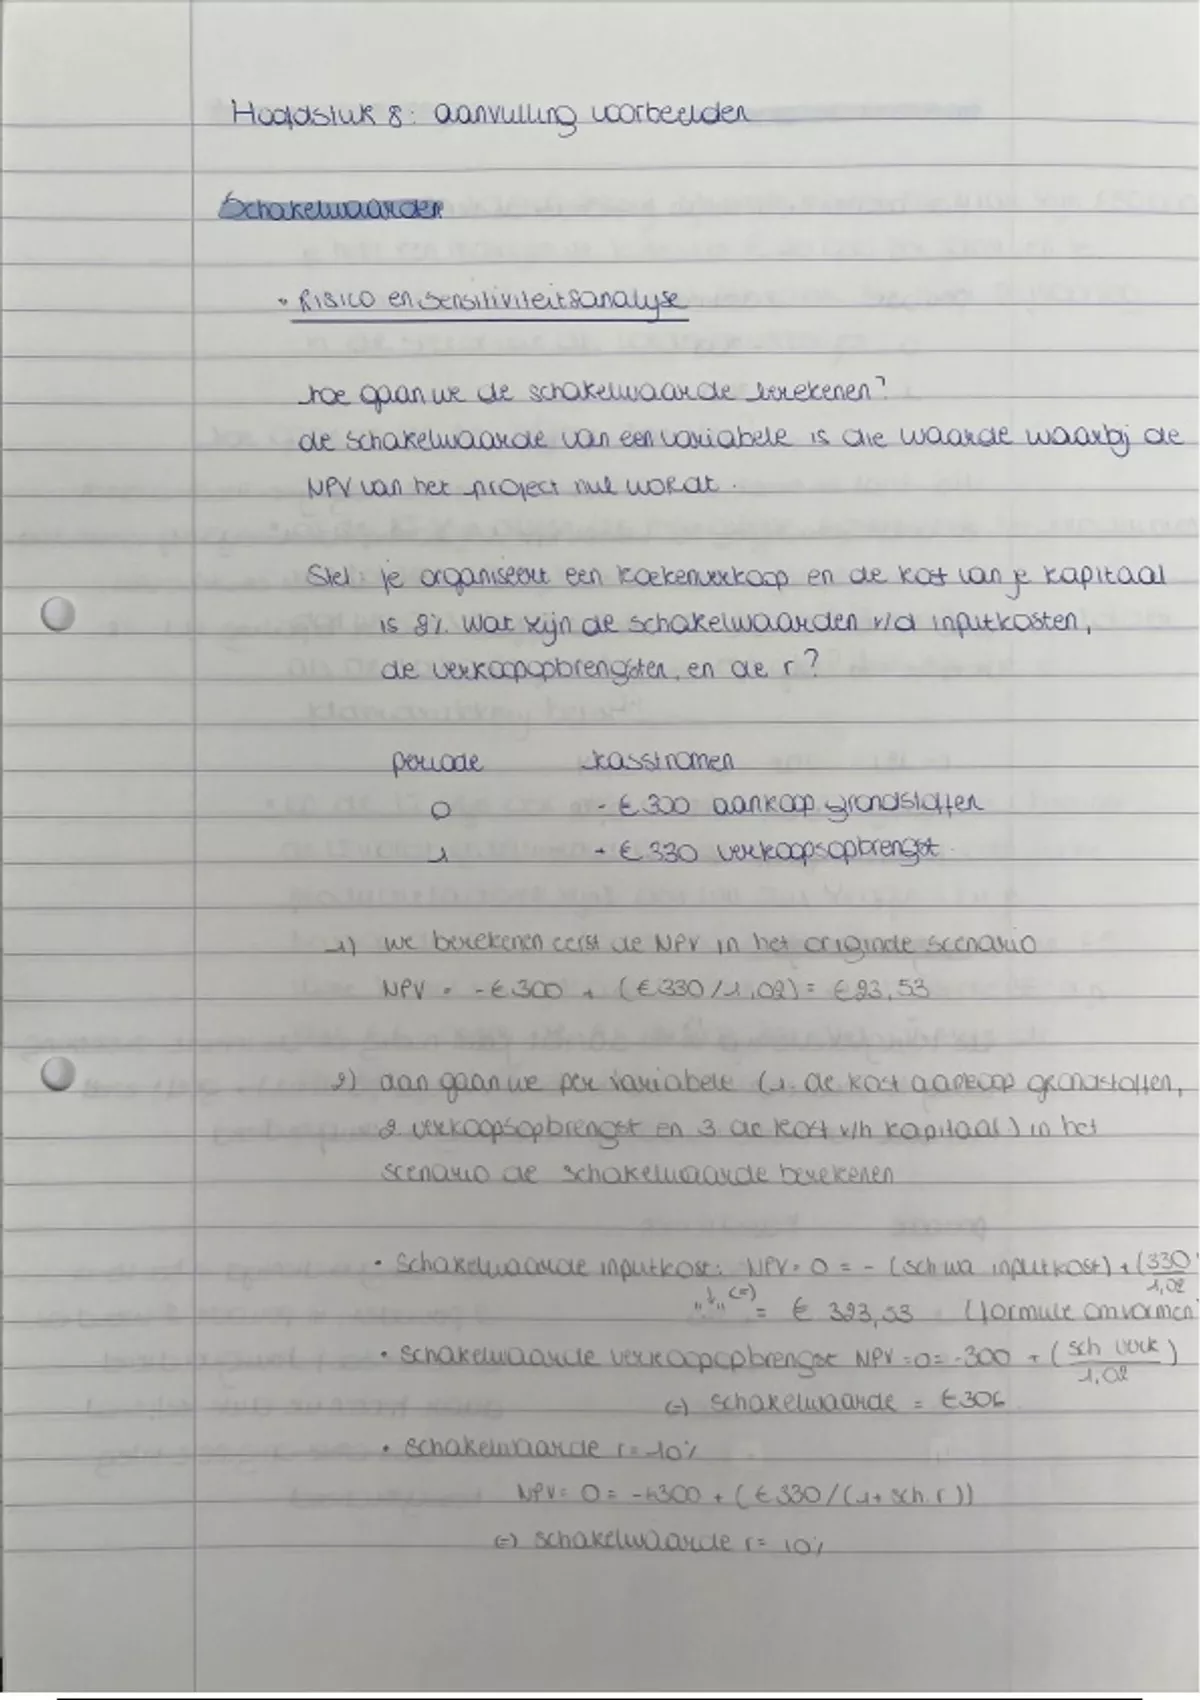 Hoofdstuk 8: aanvulling voorbeelden
Schakelwaarden
• Risico en sensitiviteitsanalyse
hoe gaan we de schakelwaarde berekenen?
de schakelwaarde van een variabele is die waarde waarbij de
NPV van het project nul wordt.
Stel: je organiseert een koekenverkoop en de kost van je kapitaal
is 2%. Wat zijn de schakelwaarden v/d inputkosten,
de verkoopopbrengsten, en de r?
periode kasstromen
0 - €300 aankoop grondstoffen
1 + €330 verkoopsopbrengst.
1) we berekenen eerst de NPV in het originele scenario
NPV = -€300 + (€330/1,02) = €23,53
2) dan gaan we per variabele (1. de kost aankoop grondstoffen,
2. verkoopsopbrengst en 3 de kost v/h kapitaal) in het
scenario de schakelwaarde berekenen
• Schakelwaarde inputkost: NPV = 0 = - (sch wa inputkost) + (330
1,02
"↓" (=) = € 323,53 (formule omvormen
• schakelwaarde verkoopopbrengst NPV = 0 = -300 + (sch verk)
1,02
(=) schakelwaarde = €306
• schakelwaarde r = 10%
NPV = 0 = -€300 + (€330/(1+ sch. r))
(=) schakelwaarde r = 10%